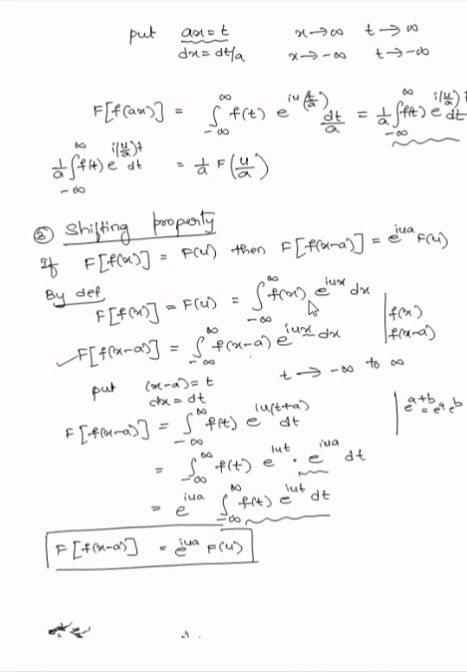 put ax = t x → ∞ t → ∞
dx = dt/a x → -∞ t → -∞
F[f(ax)] = ∫_{-∞}^{∞} f(t) e^{iu(t/a)} dt/a = 1/a ∫_{-∞}^{∞} f(t) e^{i(u/a)t} dt
1/a ∫_{-∞}^{∞} f(t) e^{i(u/a)t} dt = 1/a F(u/a)
③ Shifting property
If F[f(x)] = F(u) then F[f(x-a)] = e^{iua} F(u)
By def
F[f(x)] = F(u) = ∫_{-∞}^{∞} f(x) e^{iux} dx | f(x)
F[f(x-a)] = ∫_{-∞}^{∞} f(x-a) e^{iux} dx | f(x-a)
put (x-a) = t t → -∞ to ∞
dx = dt
F[f(x-a)] = ∫_{-∞}^{∞} f(t) e^{iu(t+a)} dt | e^{a+b} = e^a e^b
= ∫_{-∞}^{∞} f(t) e^{iut} · e^{iua} dt
= e^{iua} ∫_{-∞}^{∞} f(t) e^{iut} dt
F[f(x-a)] = e^{iua} F(u)